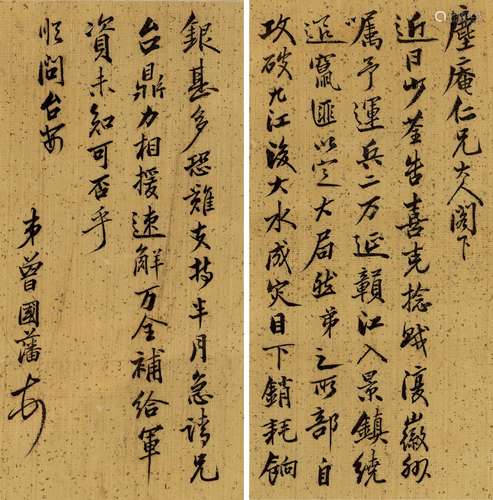 塵庵仁兄大人閣下
近日少荃告喜克捻賊復徽州
嘱予運兵二万延贛江入景鎮繞
追竄匪以定大局然弟之所部自
攻破九江後大水成災目下銷耗餉
銀甚多恐難支持半月急請兄
台鼎力相援速解万全補給軍
資未知可否乎
順問台安
弟曾國藩